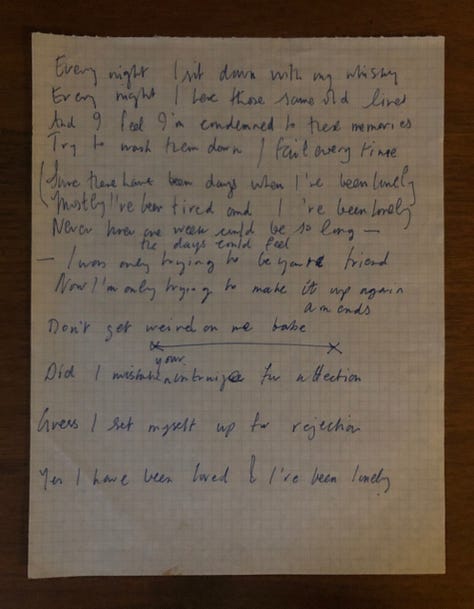 Every night I sit down with my whisky
Every night I hear those same old lines
And I feel I'm condemned to these memories
Try to wash them down / fail every time
(Sure there have been days when I've been lucky
Mostly I've been tired and I've been lonely)
Never knew one week could be so long —
the days could feel
— I was only trying to be your friend
Now I'm only trying to make it up again
amends
Don't get weird on me babe
your
Did I mistake intrigue for affection
Guess I set myself up for rejection
Yes I have been loved & I've been lonely